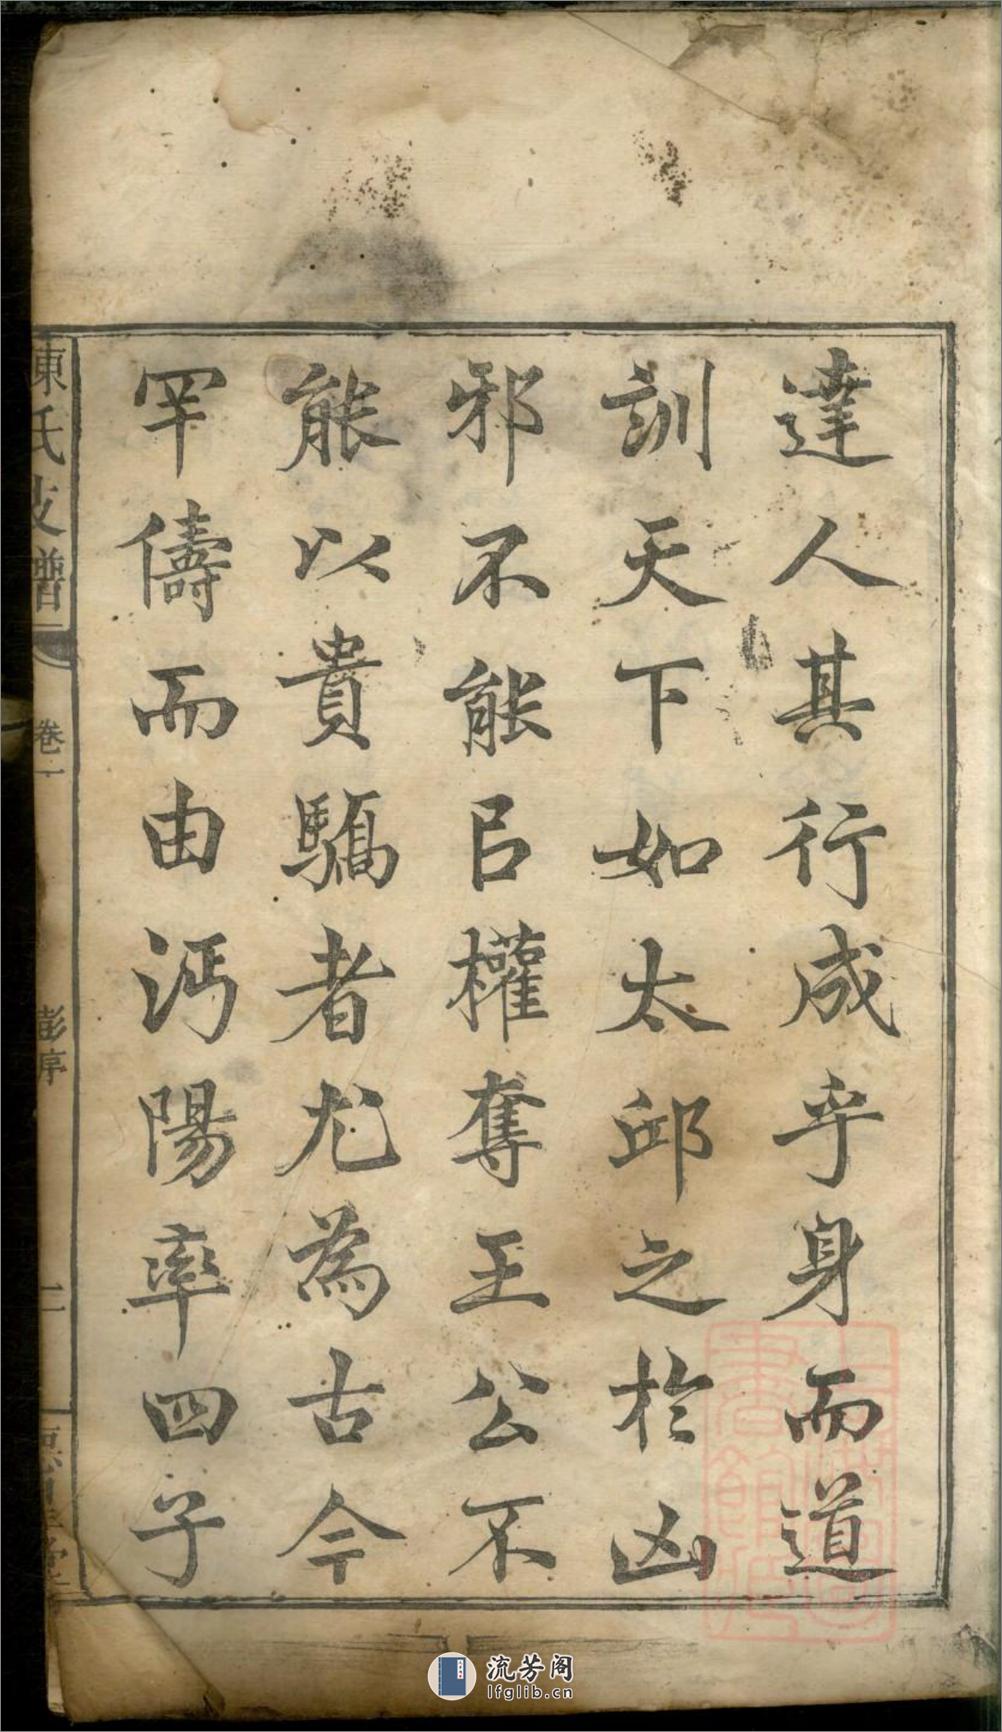 達人其行成乎身而道
訓天下如太邱之於凶
邪不能㠯權奪王公不
能以貴驕者尤為古今
罕儔而由沔陽率四子
陳氏支譜
卷一
彭序
二
流芳阁
lfglib.cn